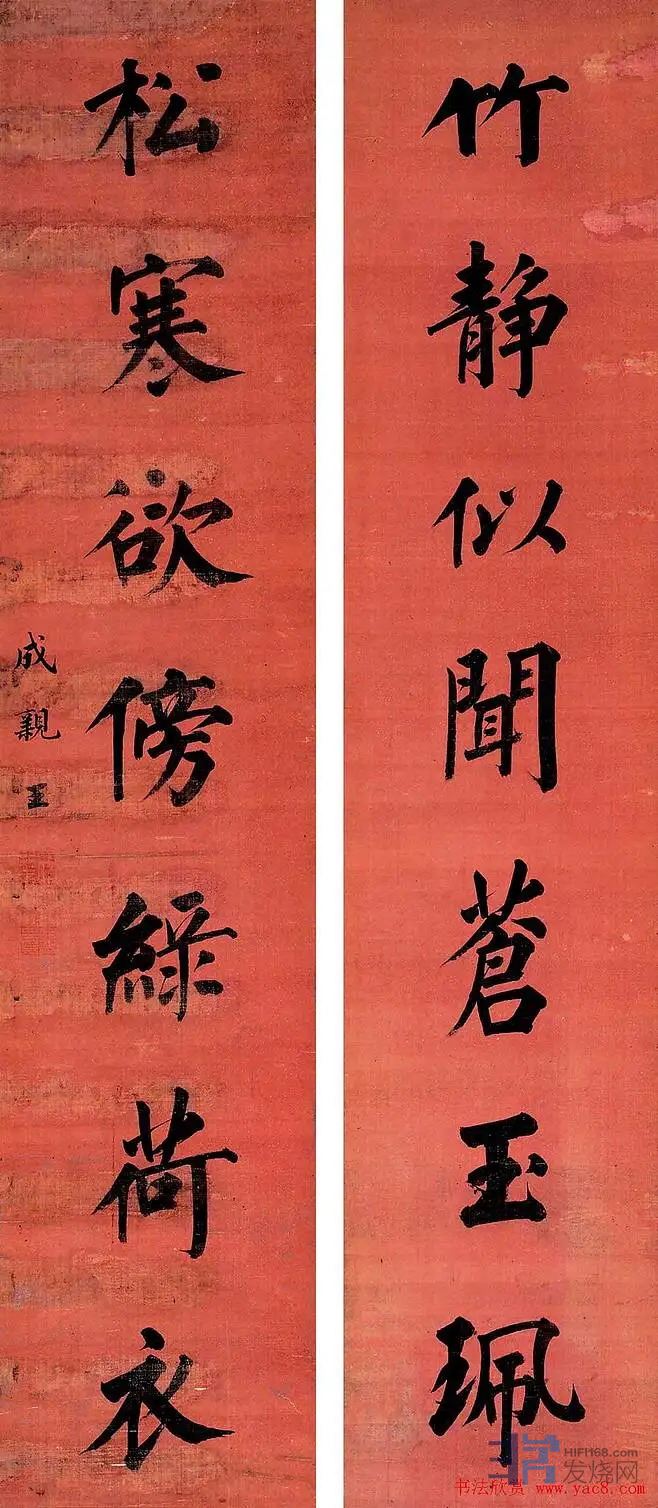 竹静似聞蒼玉珮
松寒欲傍綠荷衣
成親王
HIFI168.com
发烧网
书法欣赏 www.yac8.com